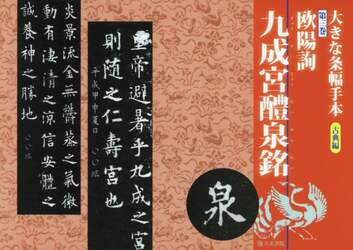 大きな条幅手本
古典編
第三巻
欧陽詢
九成宮醴泉銘
泉
皇帝避暑乎九成之宮
則随之仁壽宮也
炎景流金無鬱蒸之氣微風徐
動有淒清之涼信安體之佳所
誠養神之勝地